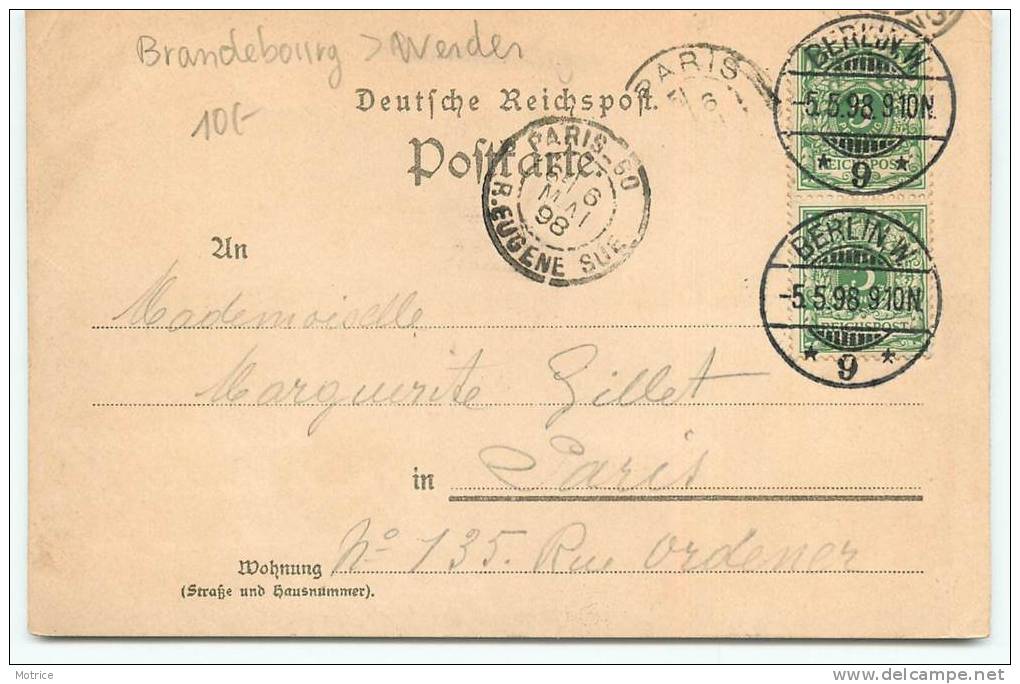 Brandebourg > Werder
10€
Deutsche Reichspost.
Postkarte.
PARIS
6
PARIS-60
6
MAI
98
R. EUGENE SUE
BERLIN.W.
-5.5.98.9-10N.
* 9 *
REICHSPOST
BERLIN.W.
-5.5.98.9-10N.
* 9 *
5
REICHSPOST
An
Mademoiselle
Marguerite Gillet
in Paris
Wohnung No 135. Rue Ordener
(Straße und Hausnummer).
Motrice
www.delcampe.net